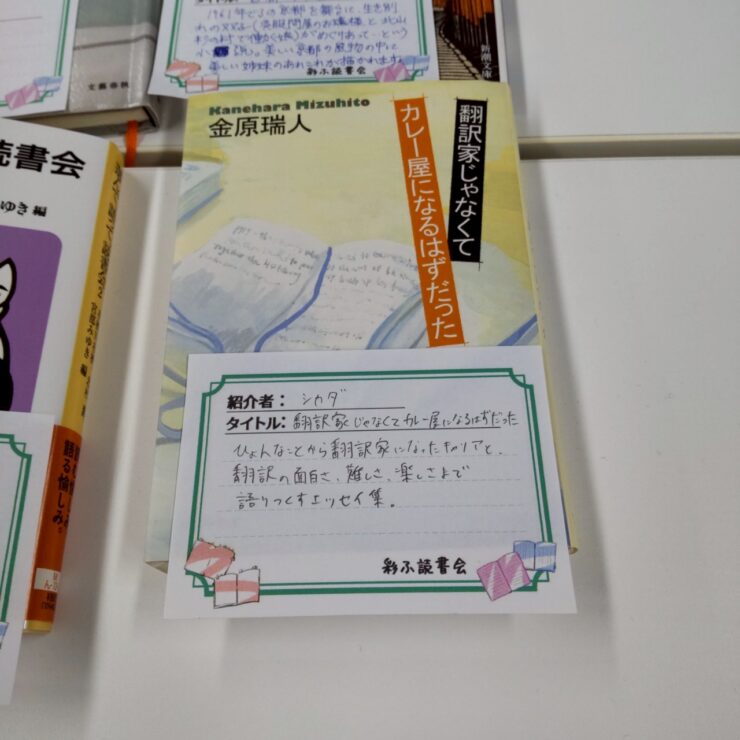 文藝春秋
1961年ごろの京都を舞台に、生き別
れのふたご(呉服問屋のお嬢様と北山
杉の村で働く娘)がめぐりあって…という
小説。美しい京都の風物の中に
美しい姉妹のあれこれが描かれます
彩ふ読書会
新潮文庫
読書会
ゆき 編
宮部みゆき 編
語る愉しみ。
Kanehara Mizuhito
金原瑞人
翻訳家じゃなくて
カレー屋になるはずだった
紹介者: シカダ
タイトル: 翻訳家じゃなくてカレー屋になるはずだった
ひょんなことから翻訳家になったキャリアと、
翻訳の面白さ、難しさ、楽しさまで
語りつくすエッセイ集。
彩ふ読書会